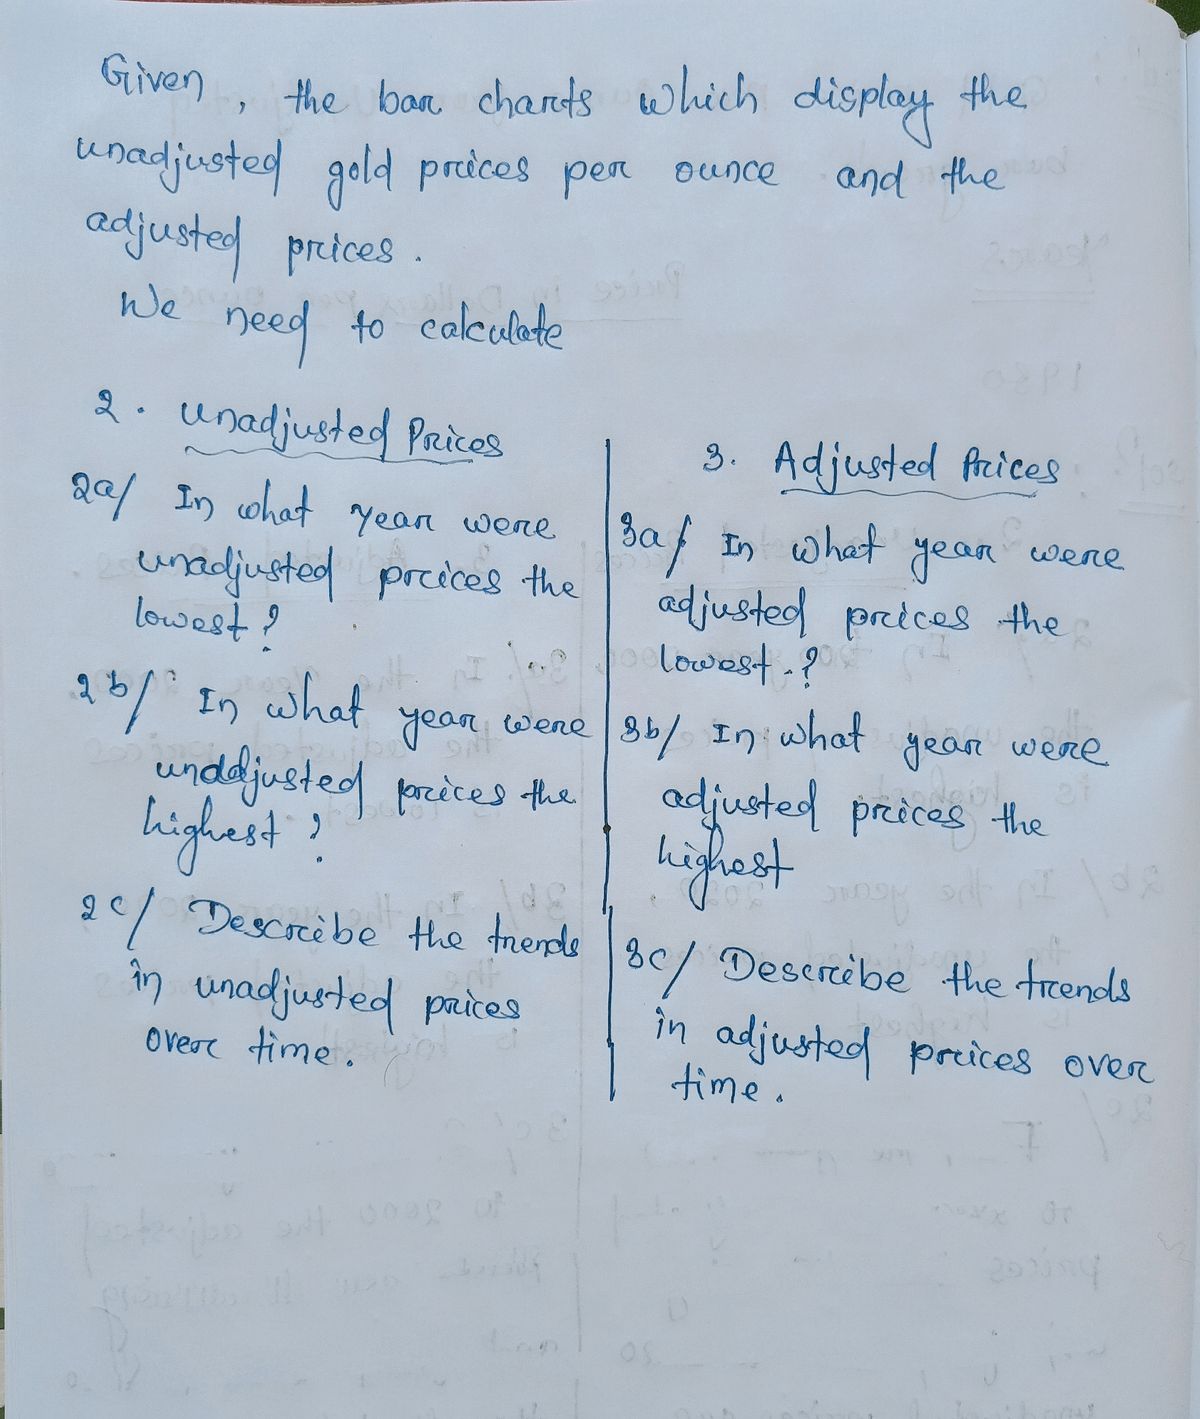 Given, the bar charts which display the
unadjusted gold prices per ounce and the
adjusted prices.
We need to calculate
2. Unadjusted Prices
2a/ In what year were
unadjusted prices the
lowest?
2b/ In what year were
unddjusted prices the
highest?
2c/ Describe the trends
in unadjusted prices
over time.
3. Adjusted Prices
3a/ In what year were
adjusted prices the
lowest.?
3b/ In what year were
adjusted prices the
highest
3c/ Describe the trends
in adjusted prices over
time.